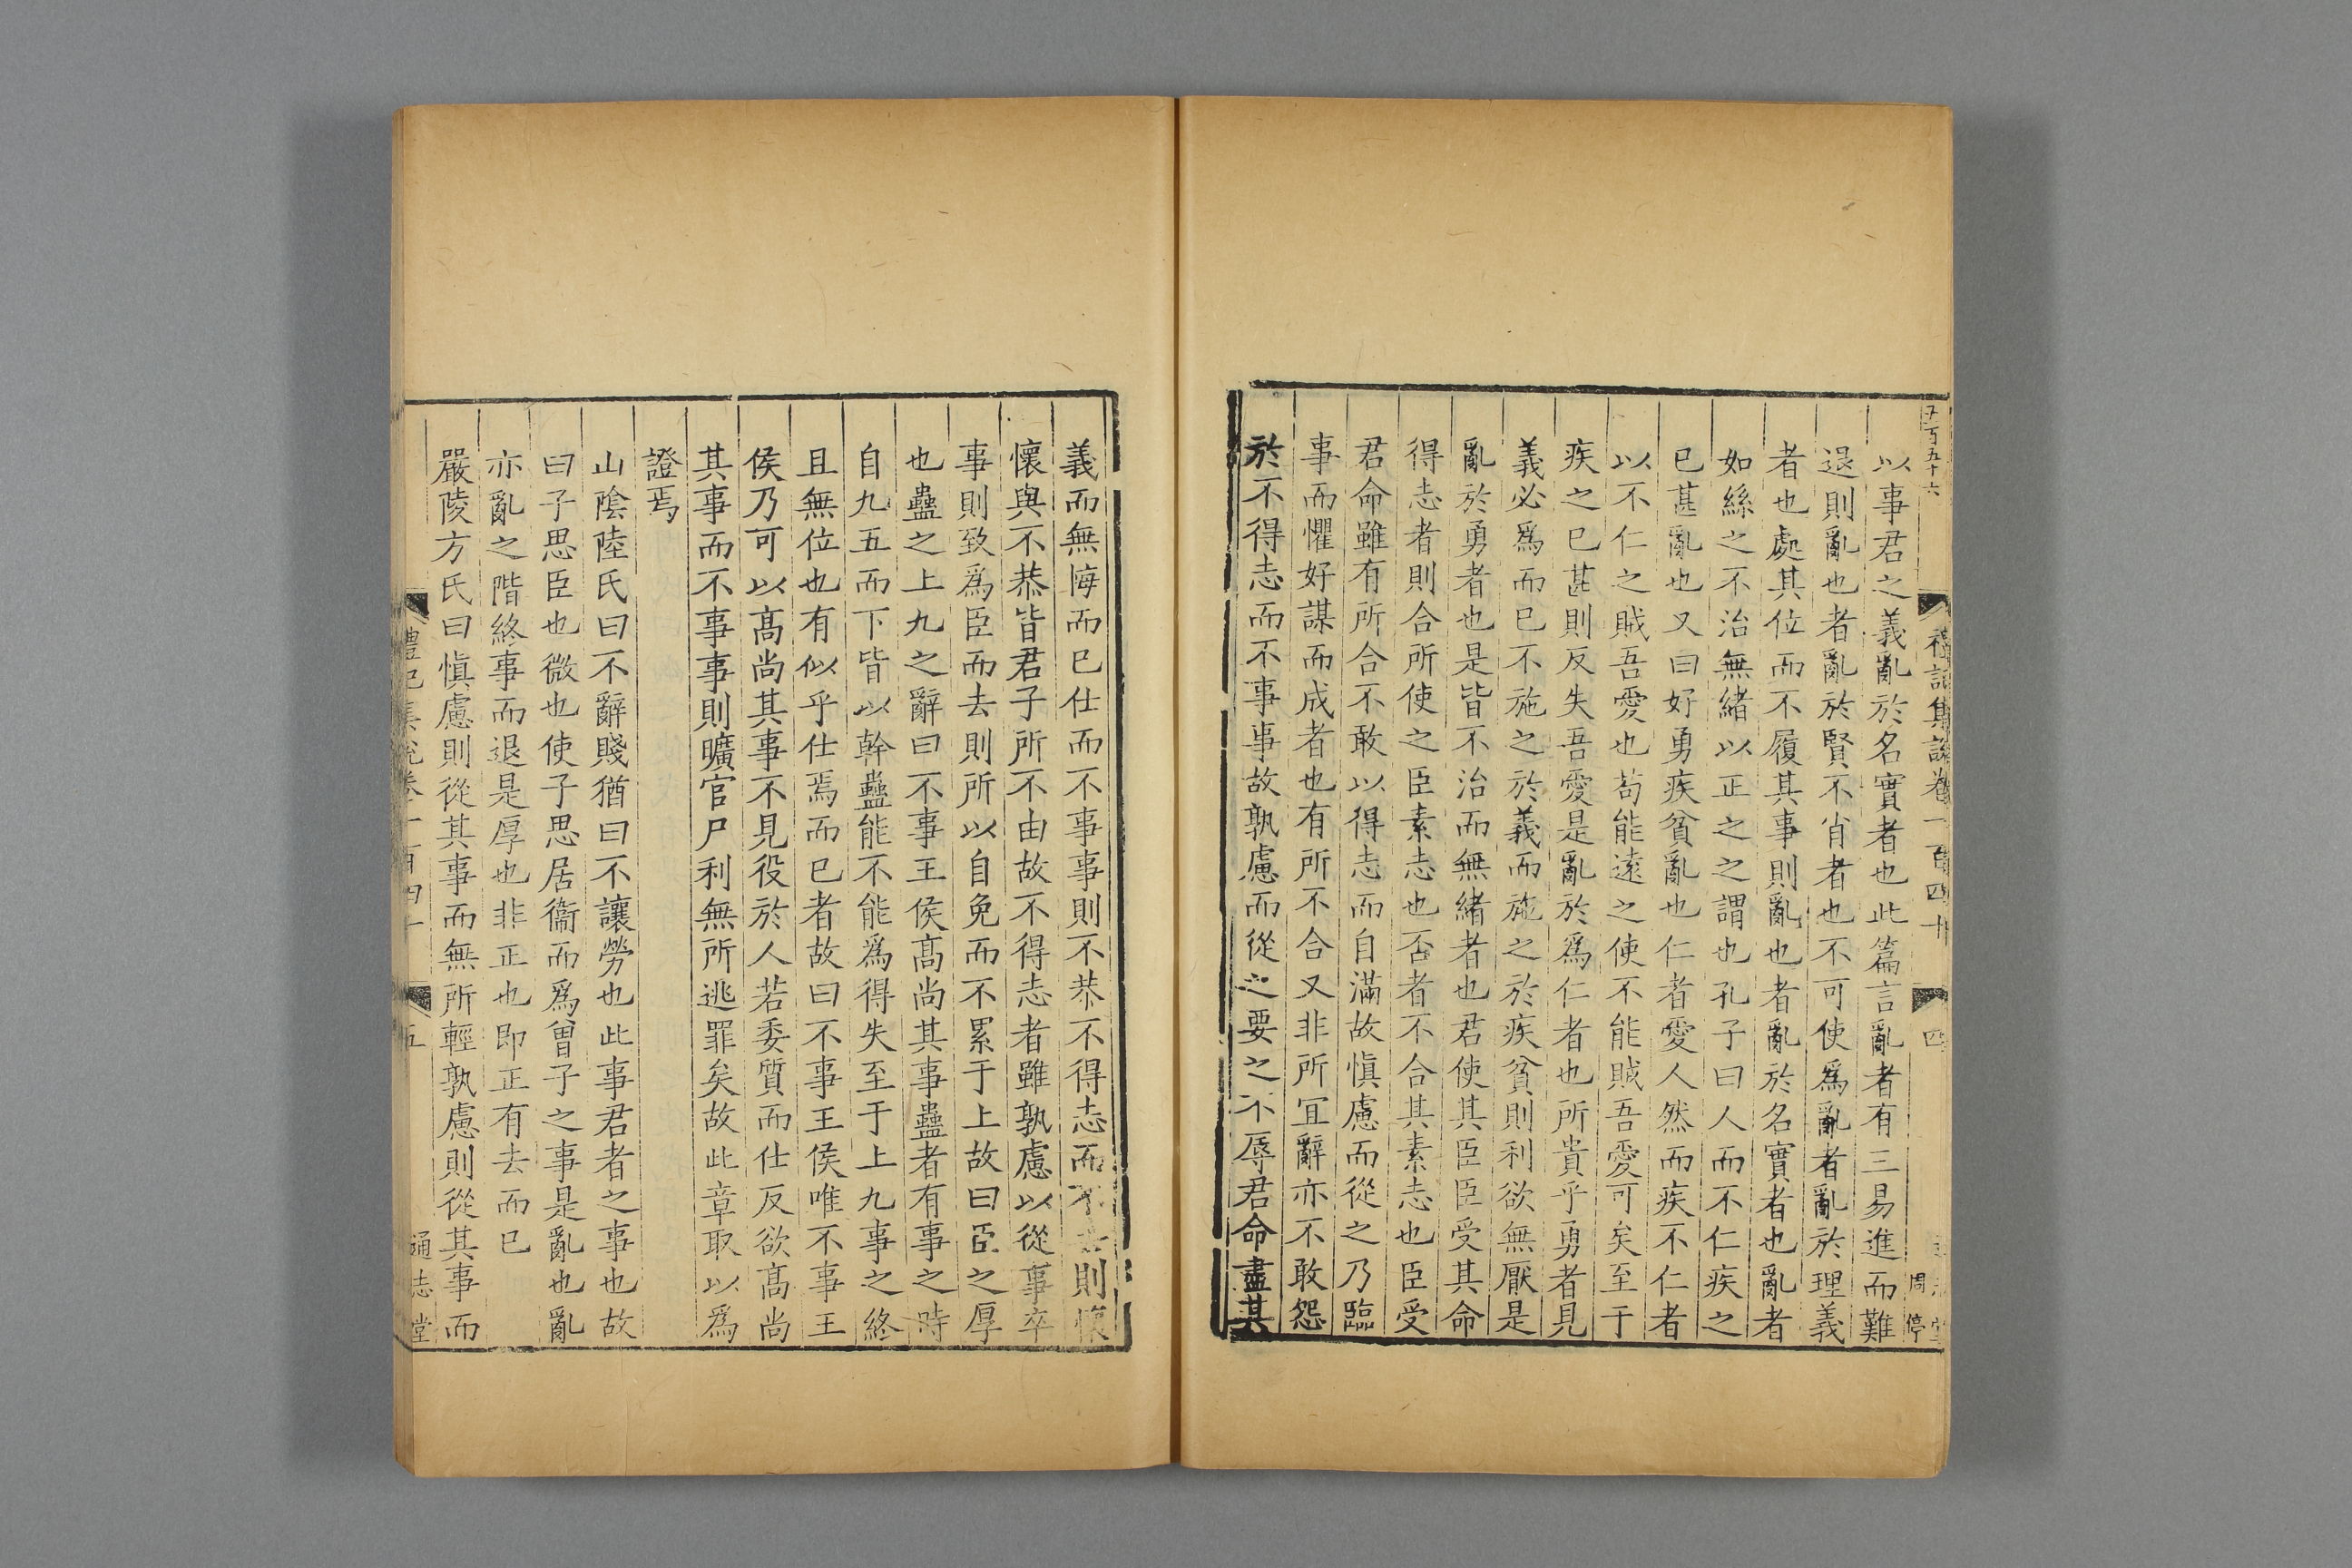 五百五十六
禮記集說卷一百四十
四
周停
以事君之義亂於名實者也此篇言亂者有三易進而難
退則亂也者亂於賢不肖者也不可使爲亂者亂於理義
者也處其位而不履其事則亂也者亂於名實者也亂者
如絲之不治無緒以正之之謂也孔子曰人而不仁疾之
已甚亂也又曰好勇疾貧亂也仁者愛人然而疾不仁者
以不仁之賊吾愛也苟能遠之使不能賊吾愛可矣至于
疾之已甚則反失吾愛是亂於爲仁者也所貴乎勇者見
義必爲而已不施之於義而施之於疾貧則利欲無厭是
亂於勇者也是皆不治而無緒者也君使其臣臣受其命
得志者則合所使之臣素志也否者不合其素志也臣受
君命雖有所合不敢以得志而自滿故愼慮而從之乃臨
事而懼好謀而成者也有所不合又非所宜辭亦不敢怨
於不得志而不事事故孰慮而從之要之不辱君命盡其
義而無悔而已仕而不事事則不恭不得志而不去則懷
懷與不恭皆君子所不由故不得志者雖孰慮以從事卒
事則致爲臣而去則所以自免而不累于上故曰臣之厚
也蠱之上九之辭曰不事王侯高尚其事蠱者有事之時
自九五而下皆以幹蠱能不能爲得失至于上九事之終
且無位也有似乎仕焉而已者故曰不事王侯唯不事王
侯乃可以高尚其事不見役於人若委質而仕反欲高尚
其事而不事事則曠官尸利無所逃罪矣故此章取以爲
證焉
山陰陸氏曰不辭賤猶曰不讓勞也此事君者之事也故
曰子思臣也微也使子思居衞而爲曾子之事是亂也亂
亦亂之階終事而退是厚也非正也即正有去而已
嚴陵方氏曰愼慮則從其事而無所輕孰慮則從其事而
禮記集說卷一百四十
五
通志堂